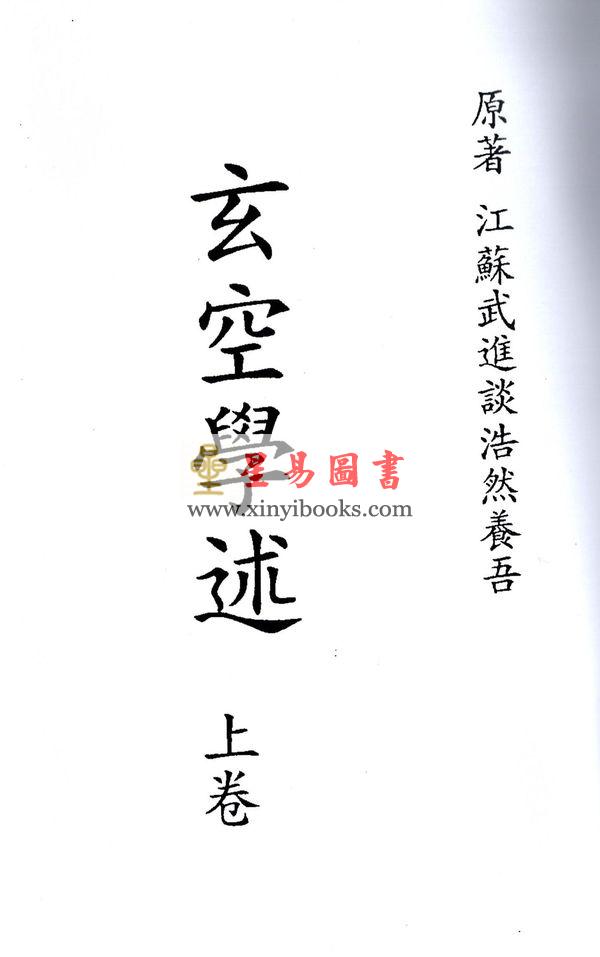 原著 江蘇武進談浩然養吾
玄空學述 上卷
星易圖書
www.xinyibooks.com